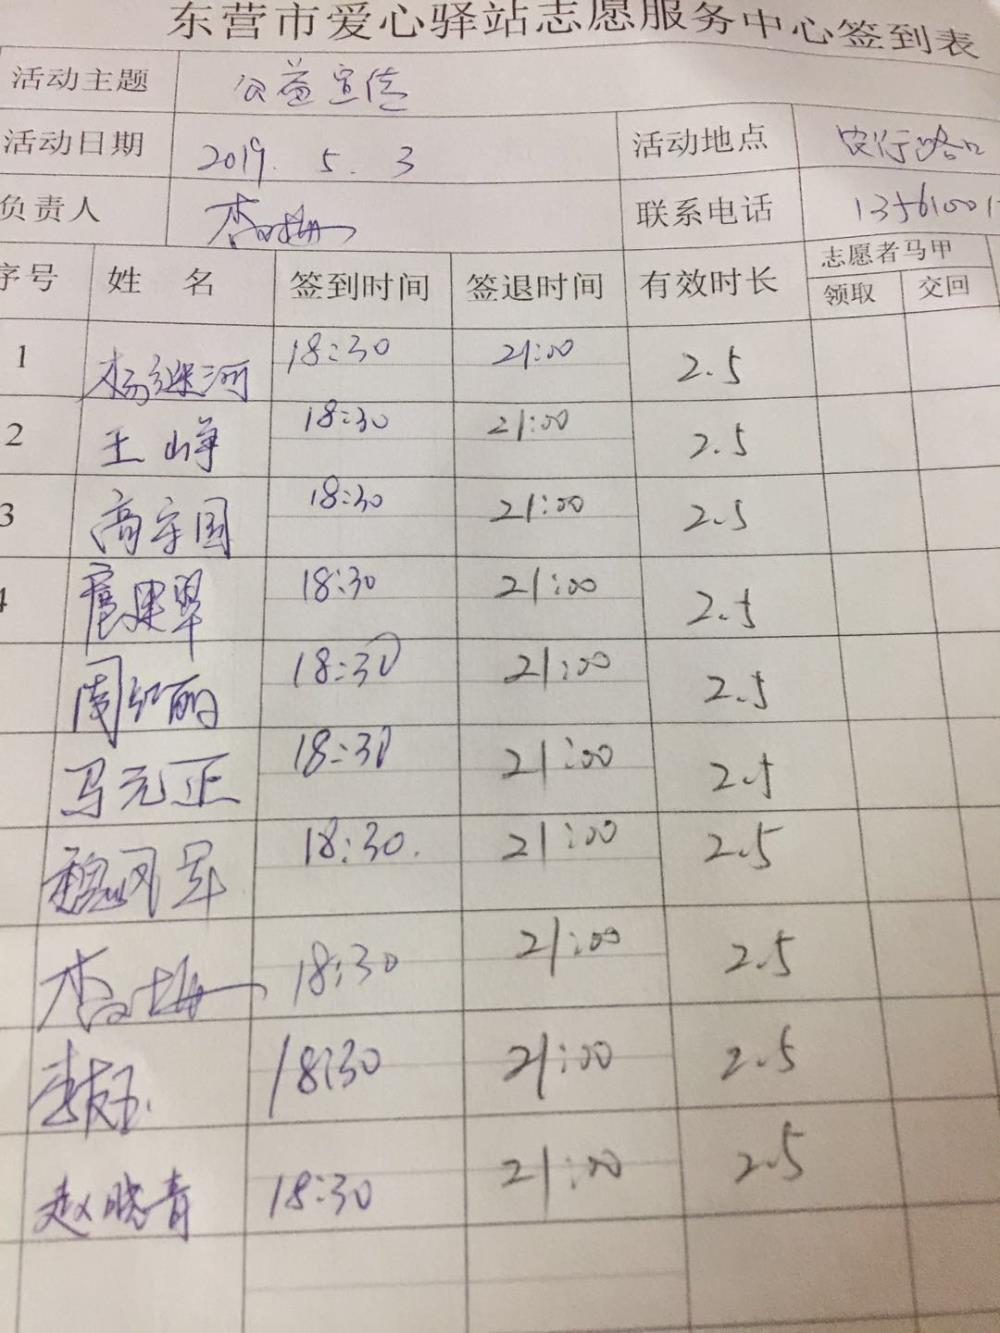 东营市爱心驿站志愿服务中心签到表
活动主题 公益宣传
活动日期 2019. 5. 3 活动地点 农行路口
负责人 联系电话 13561001
序号 姓 名 签到时间 签退时间 有效时长 志愿者马甲
领取 交回
1 杨继河 18:30 21:00 2.5
2 王峥 18:30 21:00 2.5
3 高守国 18:30 21:00 2.5
4 18:30 21:00 2.5
周红丽 18:30 21:00 2.5
马元正 18:30 21:00 2.5
18:30. 21:00 2.5
18:30 21:00 2.5
18:30 21:00 2.5
赵晓青 18:30 21:00 2.5